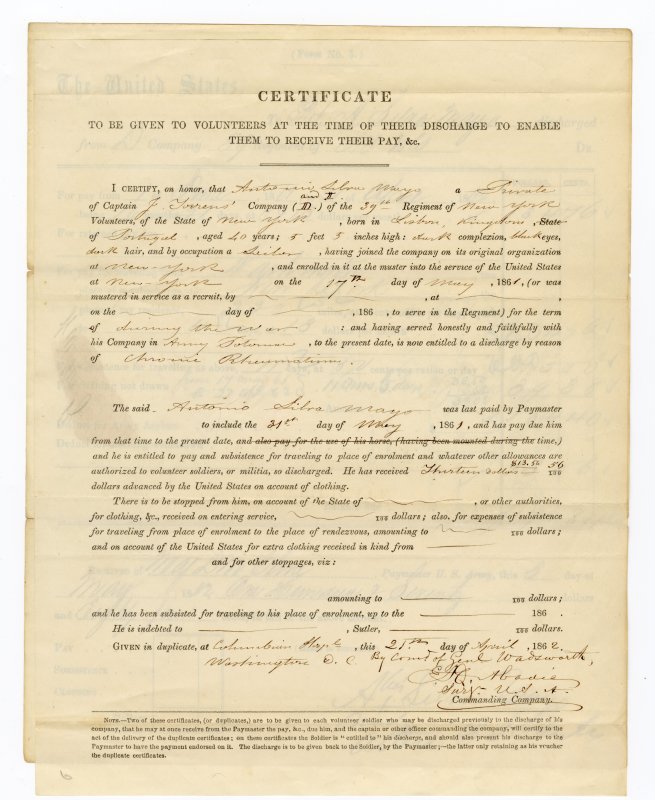 (Form No. 5.)
The United States,
CERTIFICATE
TO BE GIVEN TO VOLUNTEERS AT THE TIME OF THEIR DISCHARGE TO ENABLE
THEM TO RECEIVE THEIR PAY, &c.
I CERTIFY, on honor, that Antonio Silva Mayo a Private
and
of Captain J. Torrens' Company (D.) of the 39th Regiment of New York
Volunteers, of the State of New York, born in Lisbon, Kingdom, State
of Portugal, aged 40 years; 5 feet 5 inches high: dark complexion, black eyes,
dark hair, and by occupation a , having joined the company on its original organization
at New-York, and enrolled in it at the muster into the service of the United States
at New-York on the 17th day of May, 1861, (or was
mustered in service as a recruit, by , at ,
on the day of , 186 , to serve in the Regiment) for the term
of during the war : and having served honestly and faithfully with
his Company in Army Potomac, to the present date, is now entitled to a discharge by reason
of Chronic Rheumatism.
The said Antonio Silva Mayo was last paid by Paymaster
to include the 31st day of May, 1861, and has pay due him
from that time to the present date, and also pay for the use of his horse, (having been mounted during the time,)
and he is entitled to pay and subsistence for traveling to place of enrolment and whatever other allowances are
authorized to volunteer soldiers, or militia, so discharged. He has received Thirteen dollars $13.56 56/100
dollars advanced by the United States on account of clothing.
There is to be stopped from him, on account of the State of , or other authorities,
for clothing, &c., received on entering service, 100 dollars; also, for expenses of subsistence
for traveling from place of enrolment to the place of rendezvous, amounting to 100 dollars;
and on account of the United States for extra clothing received in kind from
and for other stoppages, viz:
amounting to 100 dollars;
and he has been subsisted for traveling to his place of enrolment, up to the 186 .
He is indebted to , Sutler, 100 dollars.
GIVEN in duplicate, at Columbian Hospl, this 25th day of April, 1862.
Washington D. C. By Comd of Genl Wadsworth,
Abadie
Surg. U.S.A.
Commanding Company.
NOTE.—Two of these certificates, (or duplicates,) are to be given to each volunteer soldier who may be discharged previously to the discharge of his
company, that he may at once receive from the Paymaster the pay, &c., due him, and the captain or other officer commanding the company, will certify to the
act of the delivery of the duplicate certificates; on these certificates the Soldier is "entitled to" his discharge, and should also present his discharge to the
Paymaster to have the payment endorsed on it. The discharge is to be given back to the Soldier, by the Paymaster;—the latter only retaining as his voucher
the duplicate certificates.
6